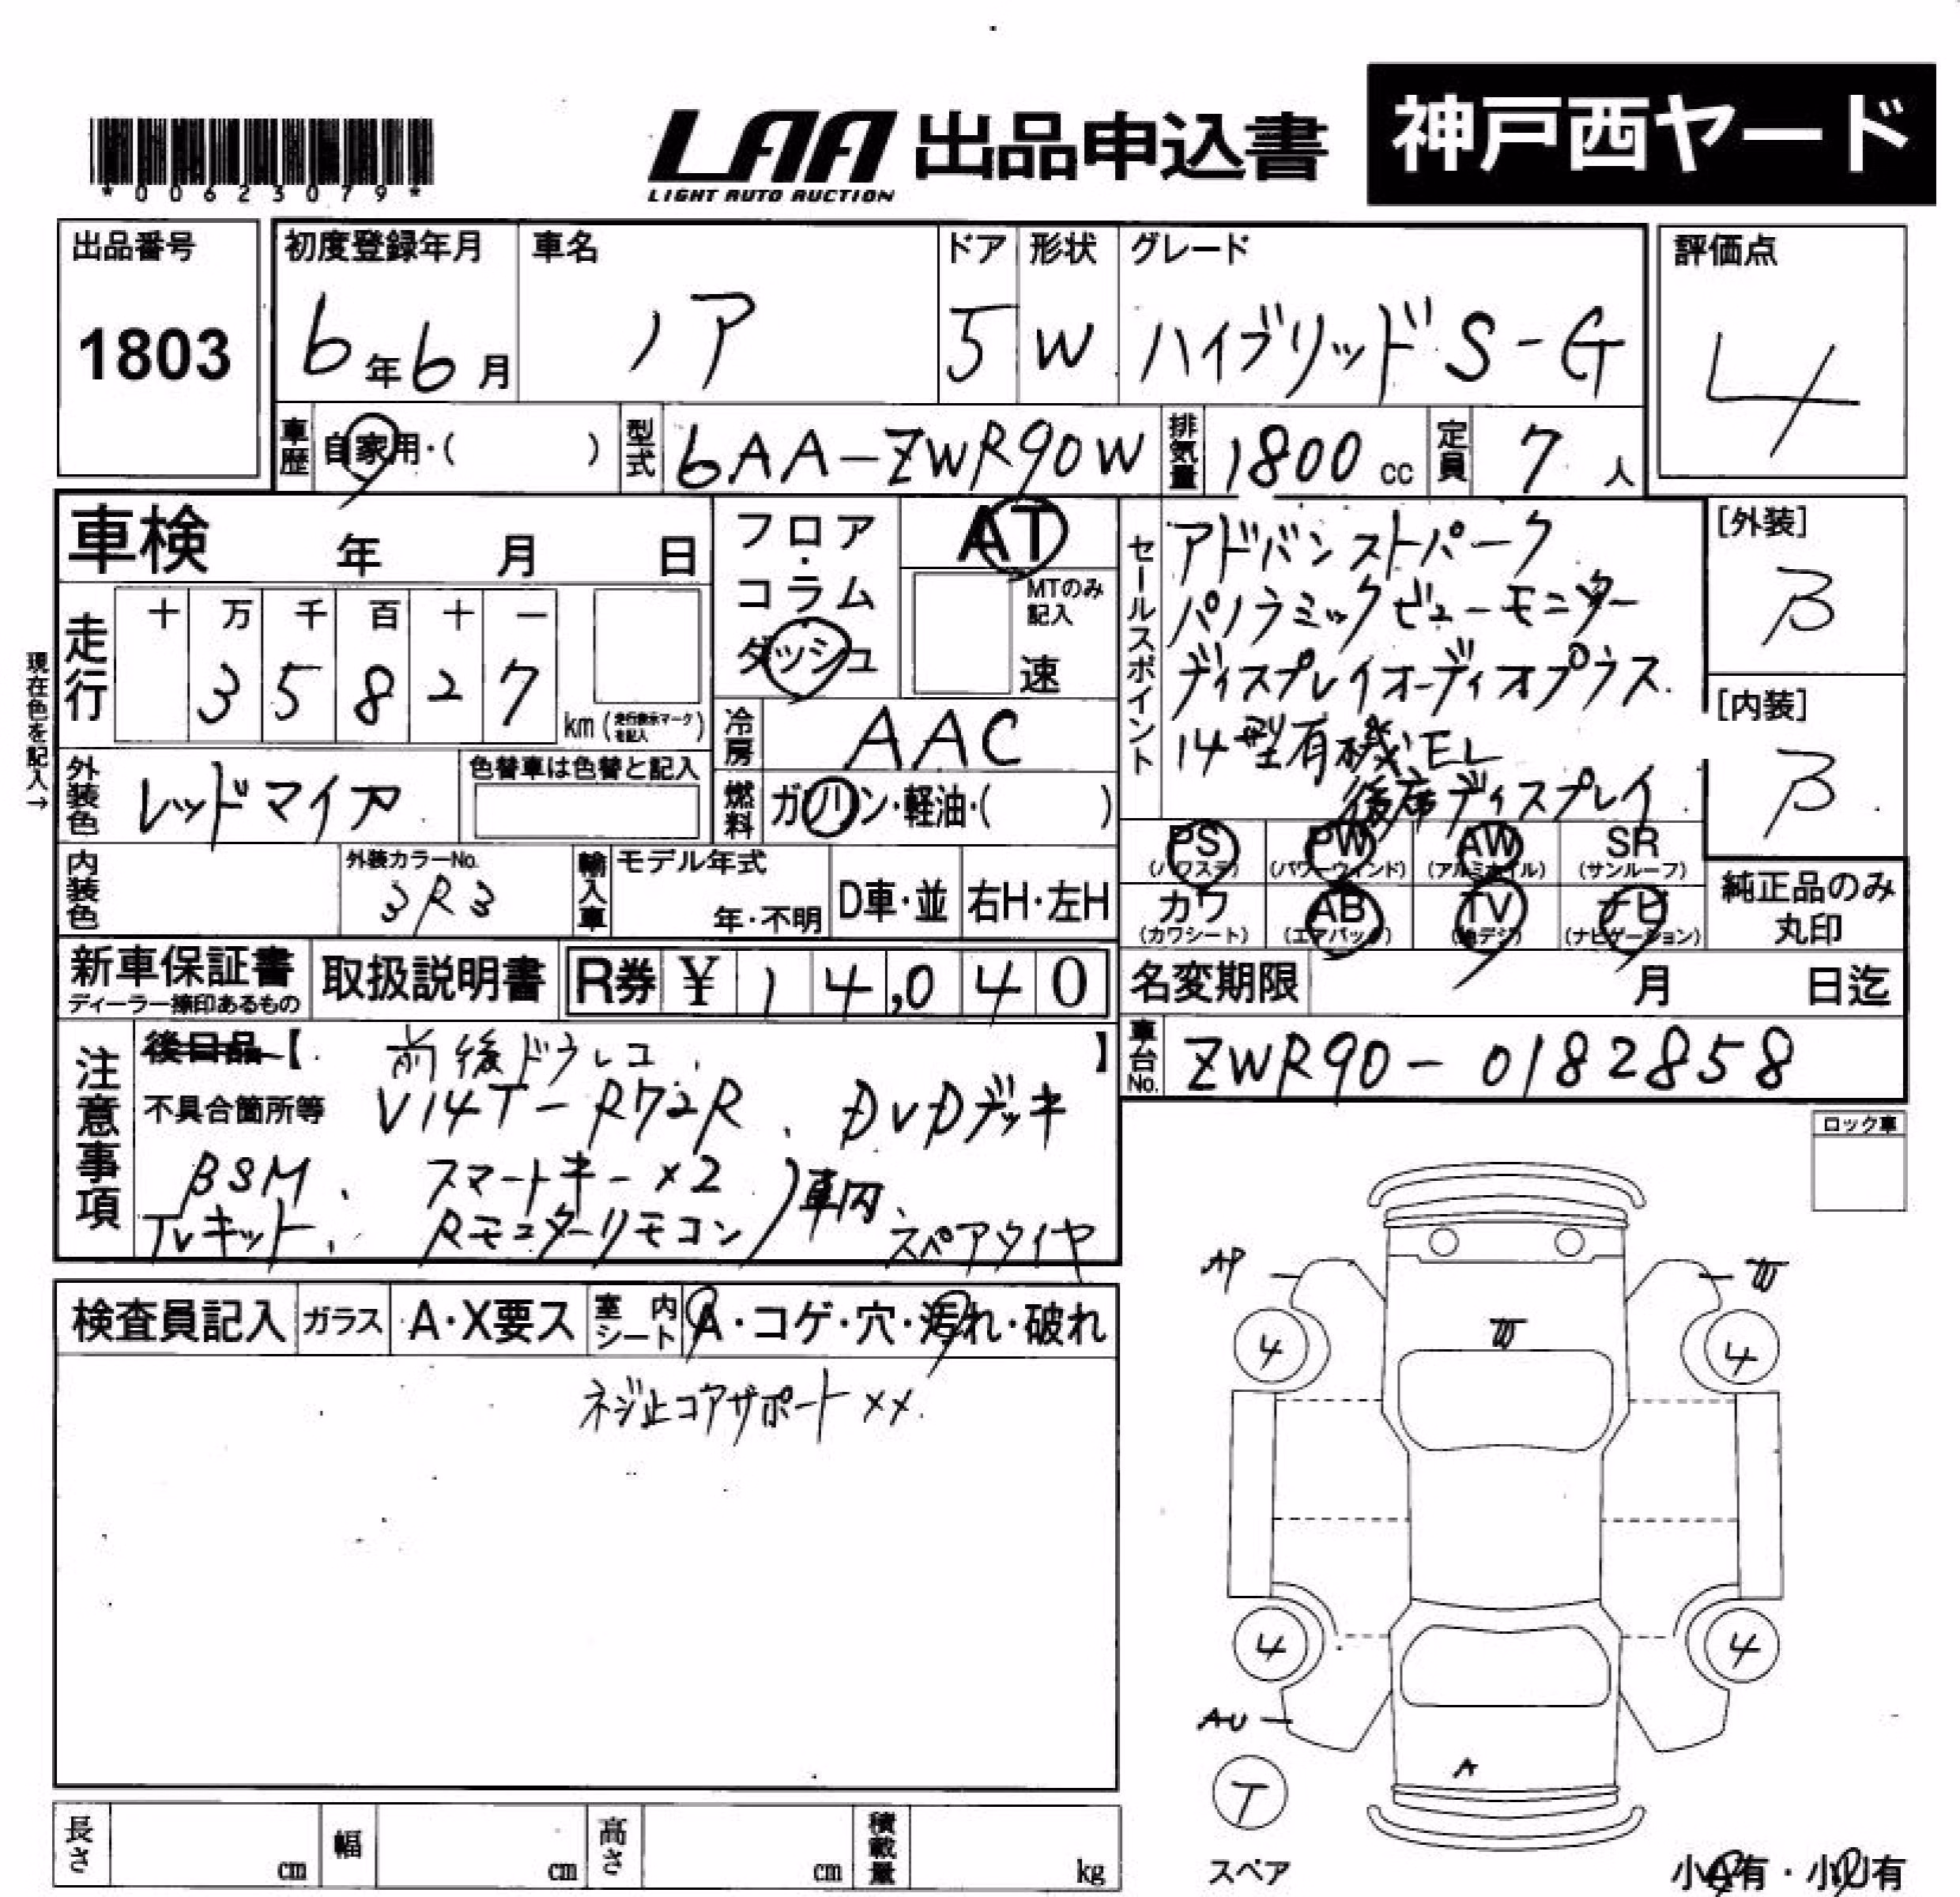 LAA 出品申込書 神戸西ヤード
LIGHT AUTO AUCTION
*00623079*
出品番号 初度登録年月 車名 ドア 形状 グレード 評価点
1803 6年6月 ノア 5 W ハイブリッドS-G 4
車歴 自家用・( ) 型式 6AA-ZWR90W 排気量 1800cc 定員 7人
車検 年 月 日
フロア・コラム ダッシュ
AT
MTのみ記入
速
セールスポイント
アドバンストパーク
パノラミックビューモニター
ディスプレイオーディオプラス
14型有機EL
後席ディスプレイ
[外装]
B
[内装]
B
現在色を記入→
走行 十 万 千 百 十 一
3 5 8 2 7 km (走行表示マークを記入)
冷房 AAC
外装色 レッドマイア 色替車は色替と記入
燃料 ガソリン・軽油・( )
PS (パワステ) PW (パワーウィンド) AW (アルミホイル) SR (サンルーフ)
カワ (カワシート) AB (エアバッグ) TV (地デジ) ナビ (ナビゲーション)
純正品のみ丸印
内装色 外装カラーNo. 3R3 輸入車 モデル年式 年・不明 D車・並 右H・左H
新車保証書 ディーラー捺印あるもの 取扱説明書 R券 ¥ 14,040
名変期限 月 日迄
車台No. ZWR90-0182858
注意事項
後日品【 前後ドラレコ、 】
不具合箇所等 V14T-R72R、DVDデッキ
BSM、 スマートキー×2
TVキット、 Rモニターリモコン)車内、スペアタイヤ
ロック車
検査員記入 ガラス A・X要ス 室内シート A・コゲ・穴・汚れ・破れ
ネジ止コアサポート××.
AP W
W
4 4
4 4
AU
A
T
スペア
長さ cm 幅 cm 高さ cm 積載量 kg
小傷有・小凹有